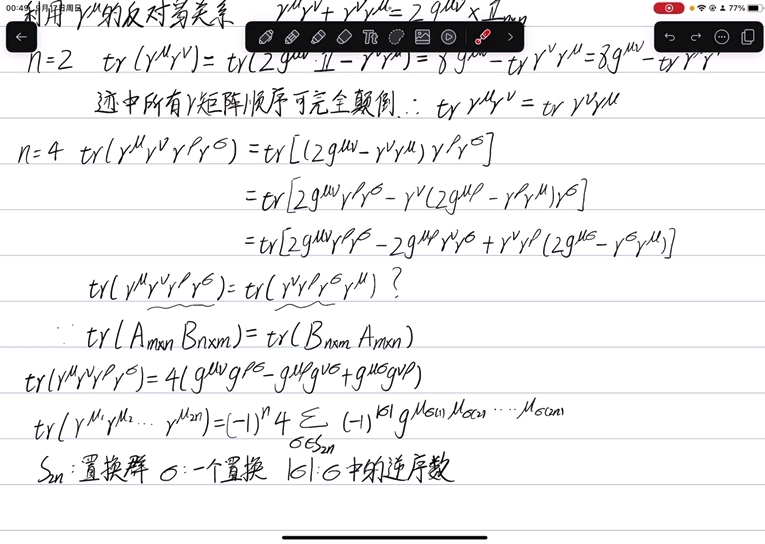 00:49 9月17日周日
77%
利用γ^μ的反对易关系 γ^μγ^ν+γ^νγ^μ=2g^{μν}×𝕀
Tt
n=2 tr(γ^μγ^ν)=tr(2g^{μν}·𝕀-γ^νγ^μ)=8g^{μν}-trγ^νγ^μ=8g^{μν}-tr
迹中所有γ矩阵顺序可完全颠倒∴ trγ^μγ^ν=trγ^νγ^μ
n=4 tr(γ^μγ^νγ^ργ^σ)=tr[(2g^{μν}-γ^νγ^μ)γ^ργ^σ]
=tr[2g^{μν}γ^ργ^σ-γ^ν(2g^{μρ}-γ^ργ^μ)γ^σ]
=tr[2g^{μν}γ^ργ^σ-2g^{μρ}γ^νγ^σ+γ^νγ^ρ(2g^{μσ}-γ^σγ^μ)]
tr(γ^μγ^νγ^ργ^σ)=tr(γ^νγ^ργ^σγ^μ)?
∵ tr(A_{m×n}B_{n×m})=tr(B_{n×m}A_{m×n})
tr(γ^μγ^νγ^ργ^σ)=4(g^{μν}g^{ρσ}-g^{μρ}g^{νσ}+g^{μσ}g^{νρ})
tr(γ^{μ_1}γ^{μ_2}…γ^{μ_{2n}})=(-1)^n 4 Σ_{σ∈S_{2n}} (-1)^{|σ|} g^{μ_{σ(1)}μ_{σ(2)}…μ_{σ(2n)}}
S_{2n}:置换群 σ:一个置换 |σ|:σ中的逆序数